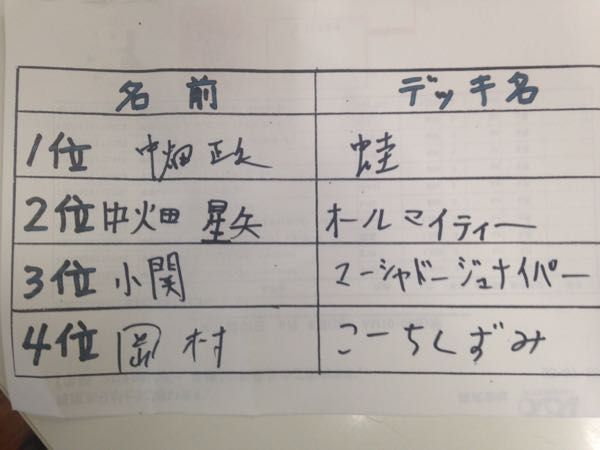 名前 デッキ名
1位 中畑 蛙
2位 中畑 星矢 オールマイティー
3位 小関 マーシャドージュナイパー
4位 岡村 こーちくずみ